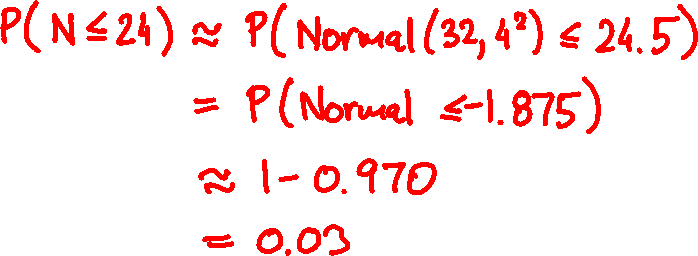 P(N≤24) ≈ P(Normal(32,4²) ≤ 24.5)
= P(Normal ≤-1.875)
≈ 1-0.970
= 0.03